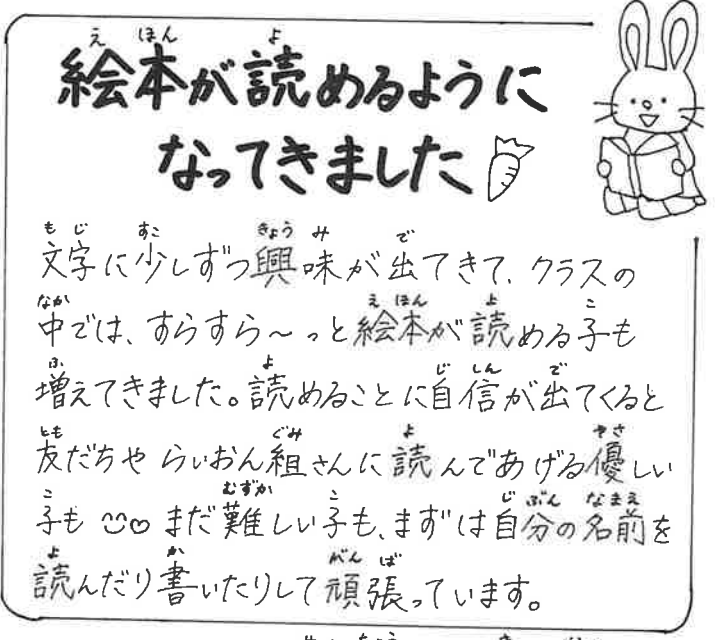 絵本が読めるように
なってきました
文字に少しずつ興味が出てきて、クラスの
中では、すらすら〜っと絵本が読める子も
増えてきました。読めることに自信が出てくると
友だちや らいおん組さんに読んであげる優しい
子も まだ難しい子も、まずは自分の名前を
読んだり書いたりして頑張っています。